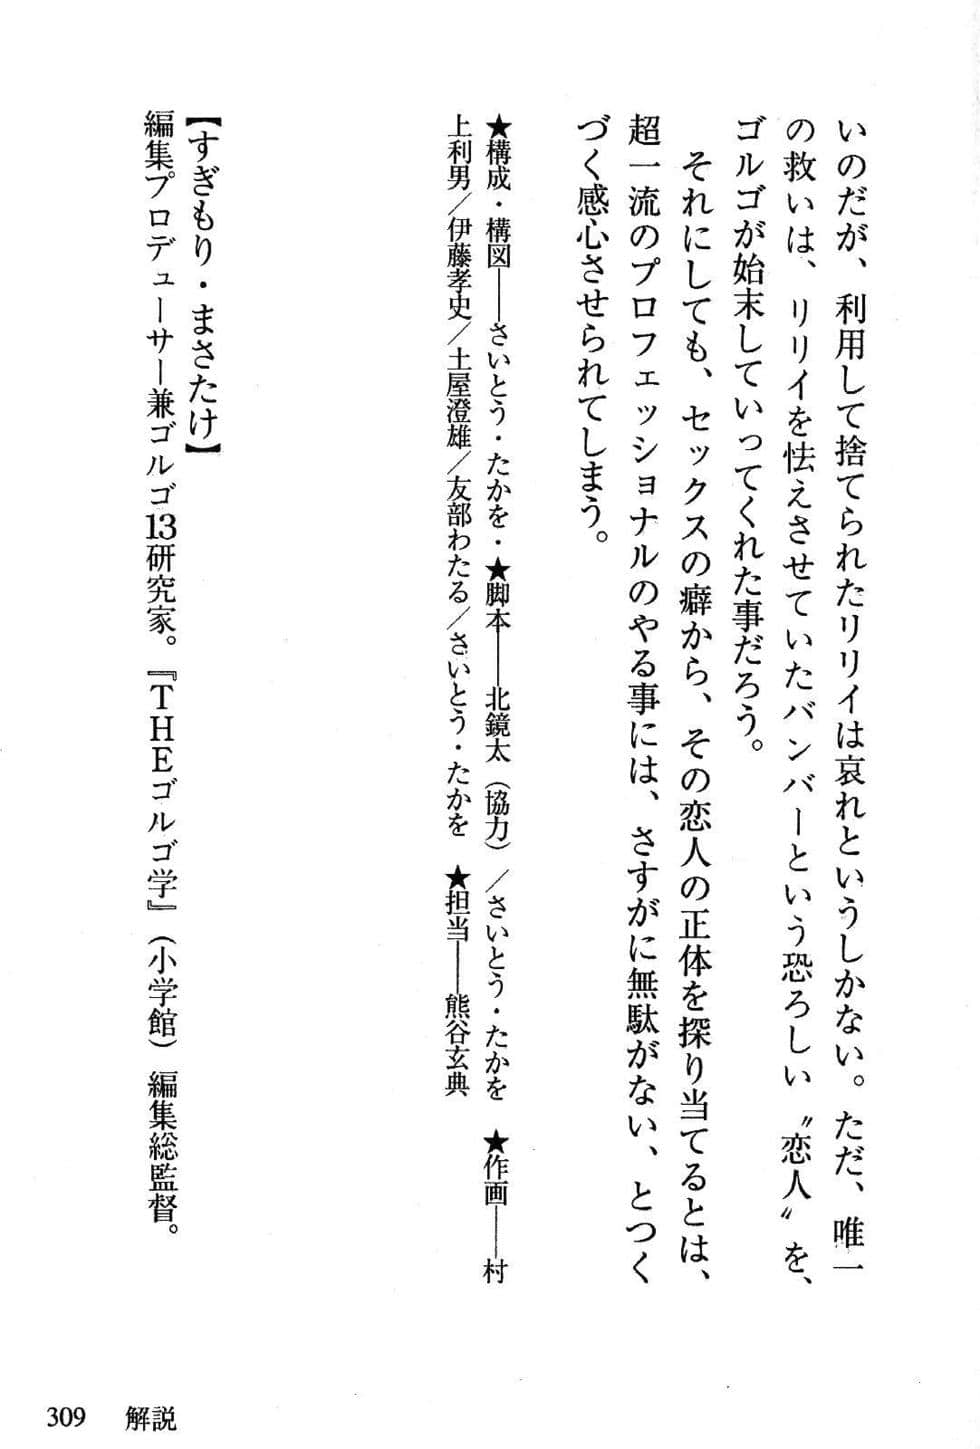 いのだが、利用して捨てられたリリイは哀れというしかない。ただ、唯一
の救いは、リリイを怯えさせていたバンバーという恐ろしい〝恋人〟を、
ゴルゴが始末していってくれた事だろう。
それにしても、セックスの癖から、その恋人の正体を探り当てるとは、
超一流のプロフェッショナルのやる事には、さすがに無駄がない、とつく
づく感心させられてしまう。
★構成・構図――さいとう・たかを・★脚本――北鏡太（協力）／さいとう・たかを　★作画――村
上利男／伊藤孝史／土屋澄雄／友部わたる／さいとう・たかを　★担当――熊谷玄典
【すぎもり・まさたけ】
編集プロデューサー兼ゴルゴ13研究家。『ＴＨＥゴルゴ学』（小学館）編集総監督。
309　解説